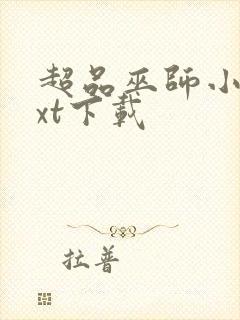 超品巫師小
xt下載
拉普